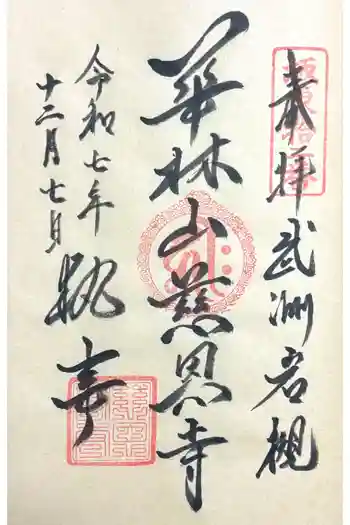 奉拝 武洲岩槻
華林山慈恩寺
令和七年
十二月七日
執事